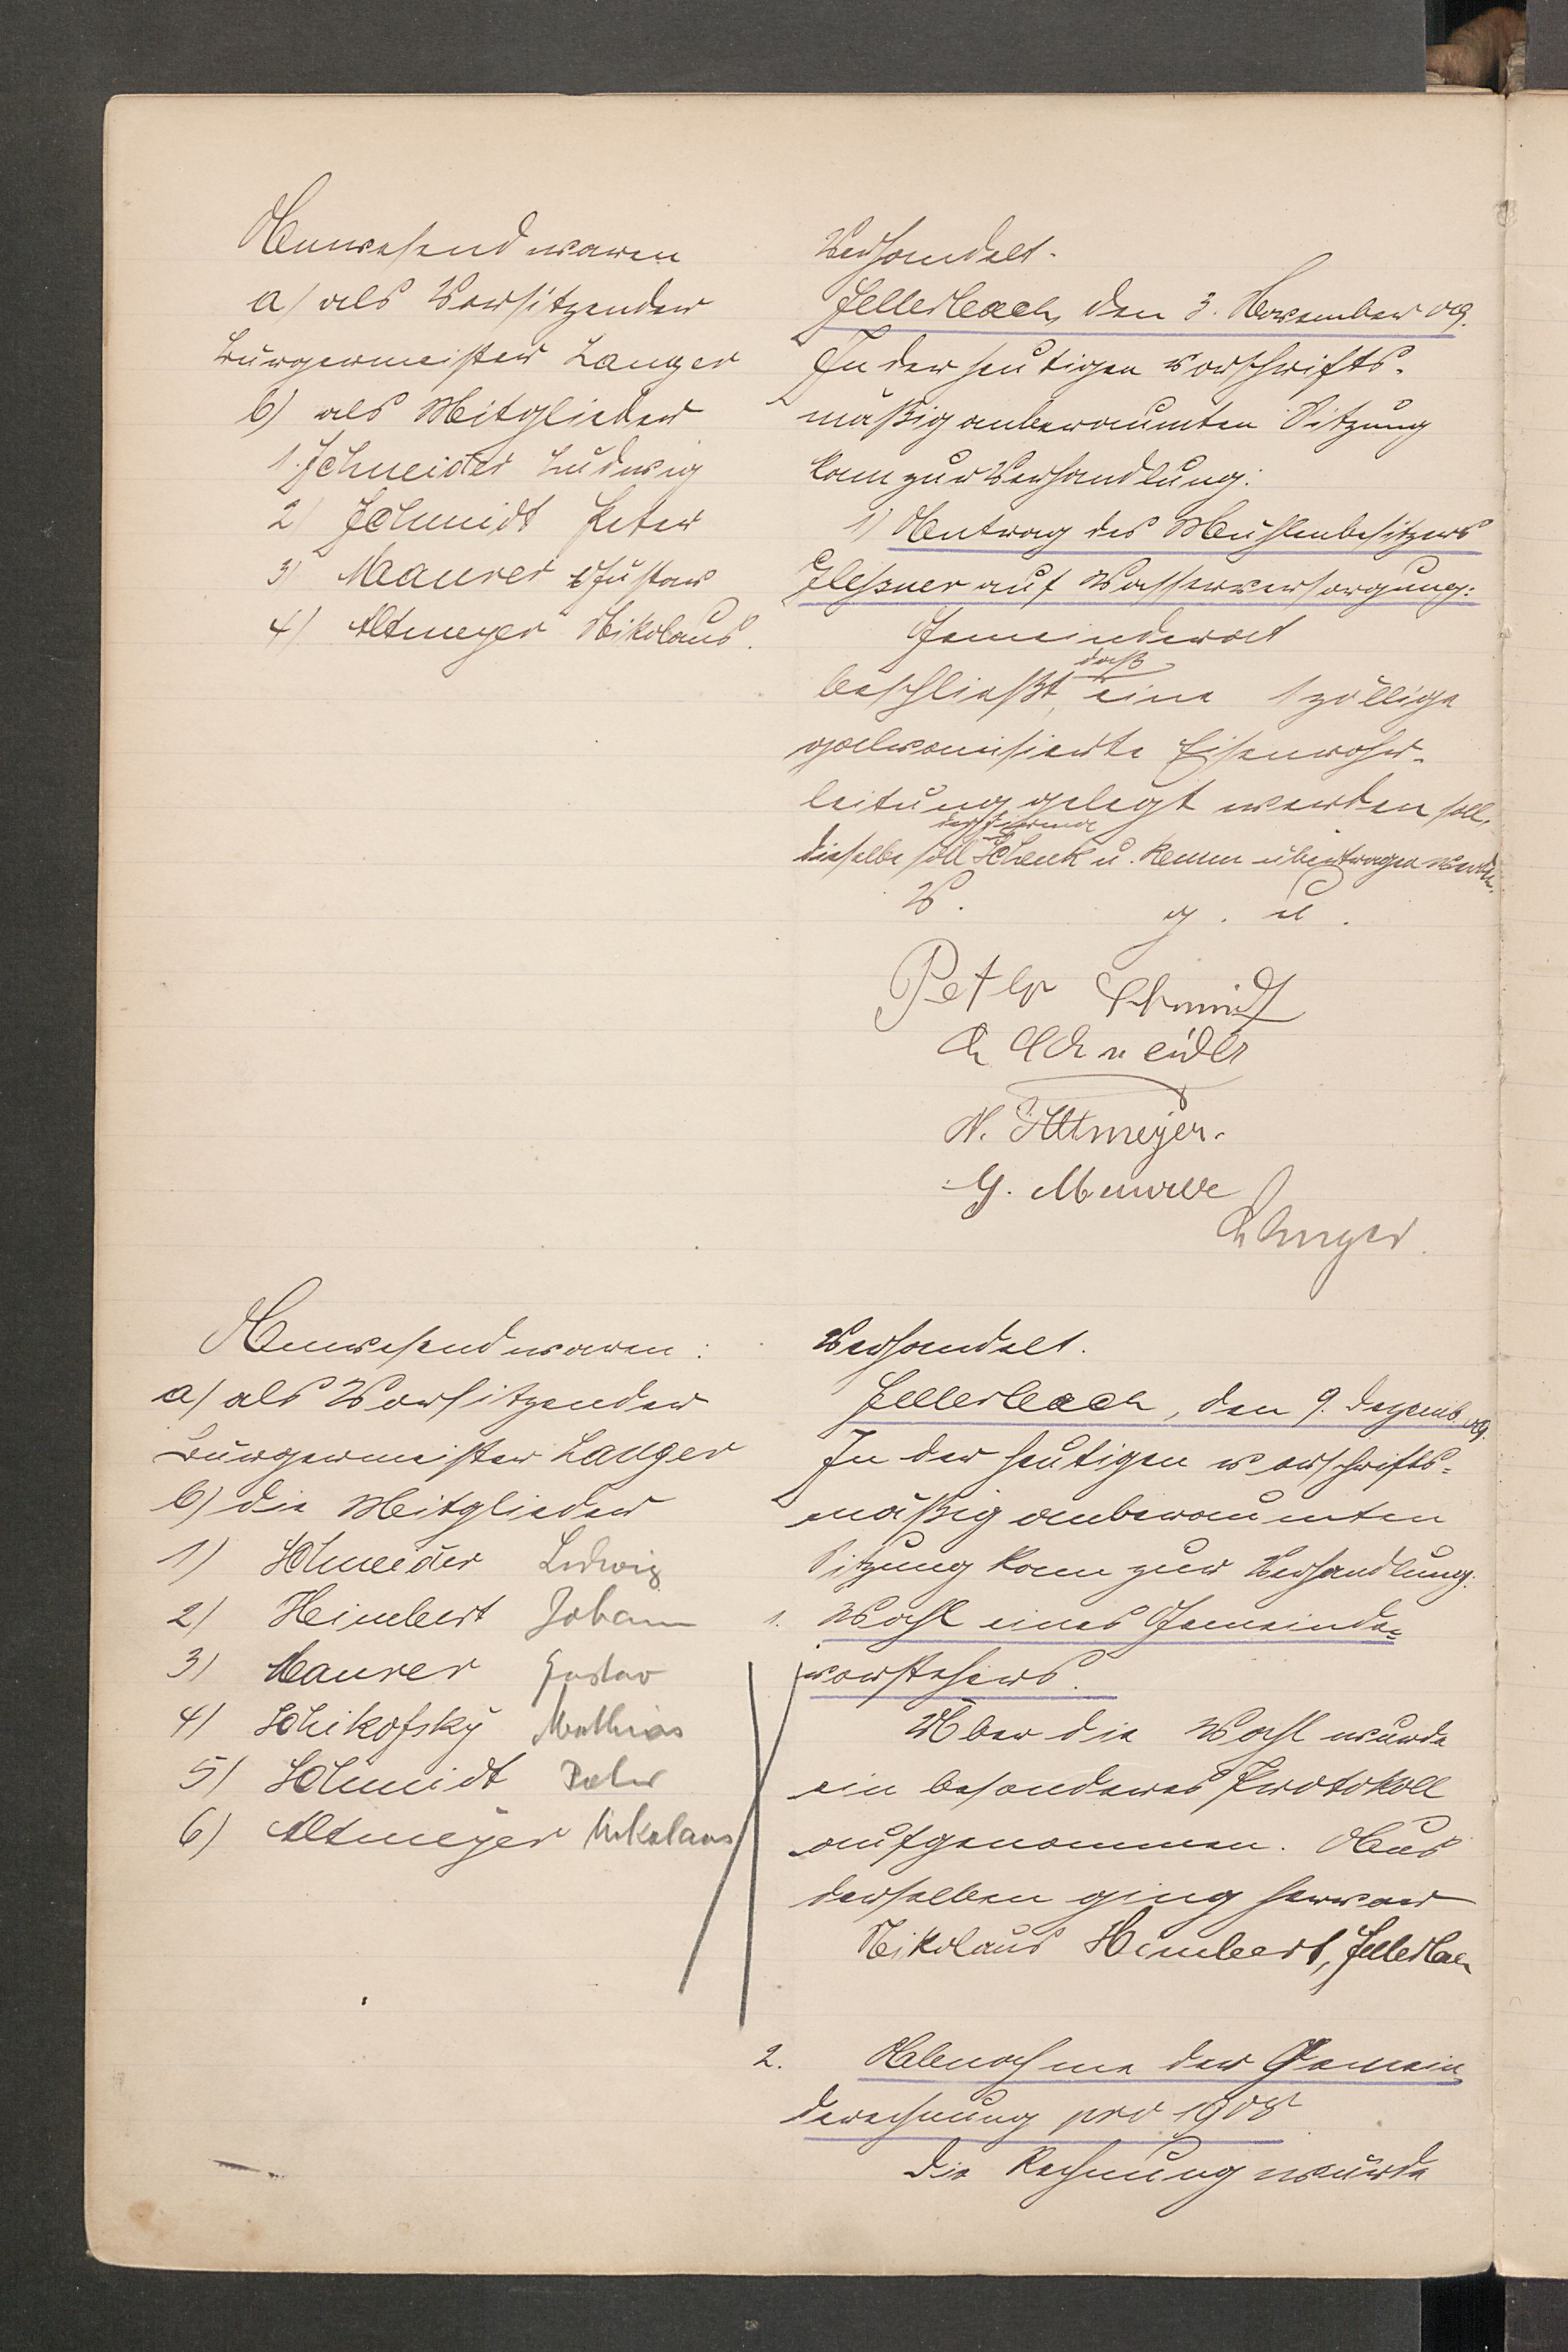 Anwesend waren
a) als Vorsitzender
Bürgermeister Langer
b) als Mitglieder
1. Schneider Ludwig
2) Schmidt Peter
3) Maurer Gustav
4) Altmeyer Nikolaus.
Verhandelt.
Sellerbach, den 3. November 09.
In der heutigen vorschrifts-
mäßig anberaumten Sitzung
kam zur Verhandlung:
1) Antrag des Mühlenbesitzers
auf Wasserversorgung:
Gemeinderat
daß
beschließt, eine 1 zöllige
galvanisierte Eisenrohr-
leitung gelegt werden soll,
der Firma
dieselbe soll Schenk u. übertragen werden.
V. g. u.
Peter Schmidt
L Schneider
N. Altmeyer.
G. Maurer
Langer.
Anwesend waren:
a) als Vorsitzender
Bürgermeister Langer
b) die Mitglieder
1) Schneider Ludwig
2) Heimbert Johann
3) Maurer Gustav
4) Schikofsky Mathias
5) Schmidt Peter
6) Altmeyer Nikolaus
Verhandelt.
Sellerbach, den 9. Dezemb. 09.
In der heutigen vorschrifts=
mäßig anberaumten
Sitzung kam zur Verhandlung:
1. Wahl eines Gemeinde=
vorstehers.
Über die Wahl wurde
ein besonderes Protokoll
aufgenommen. Aus
derselben ging hervor
Nikolaus Heimbert, Sellerbach
2. Abnahme der Gemein
derechnung pro 1908
Die Rechnung wurde